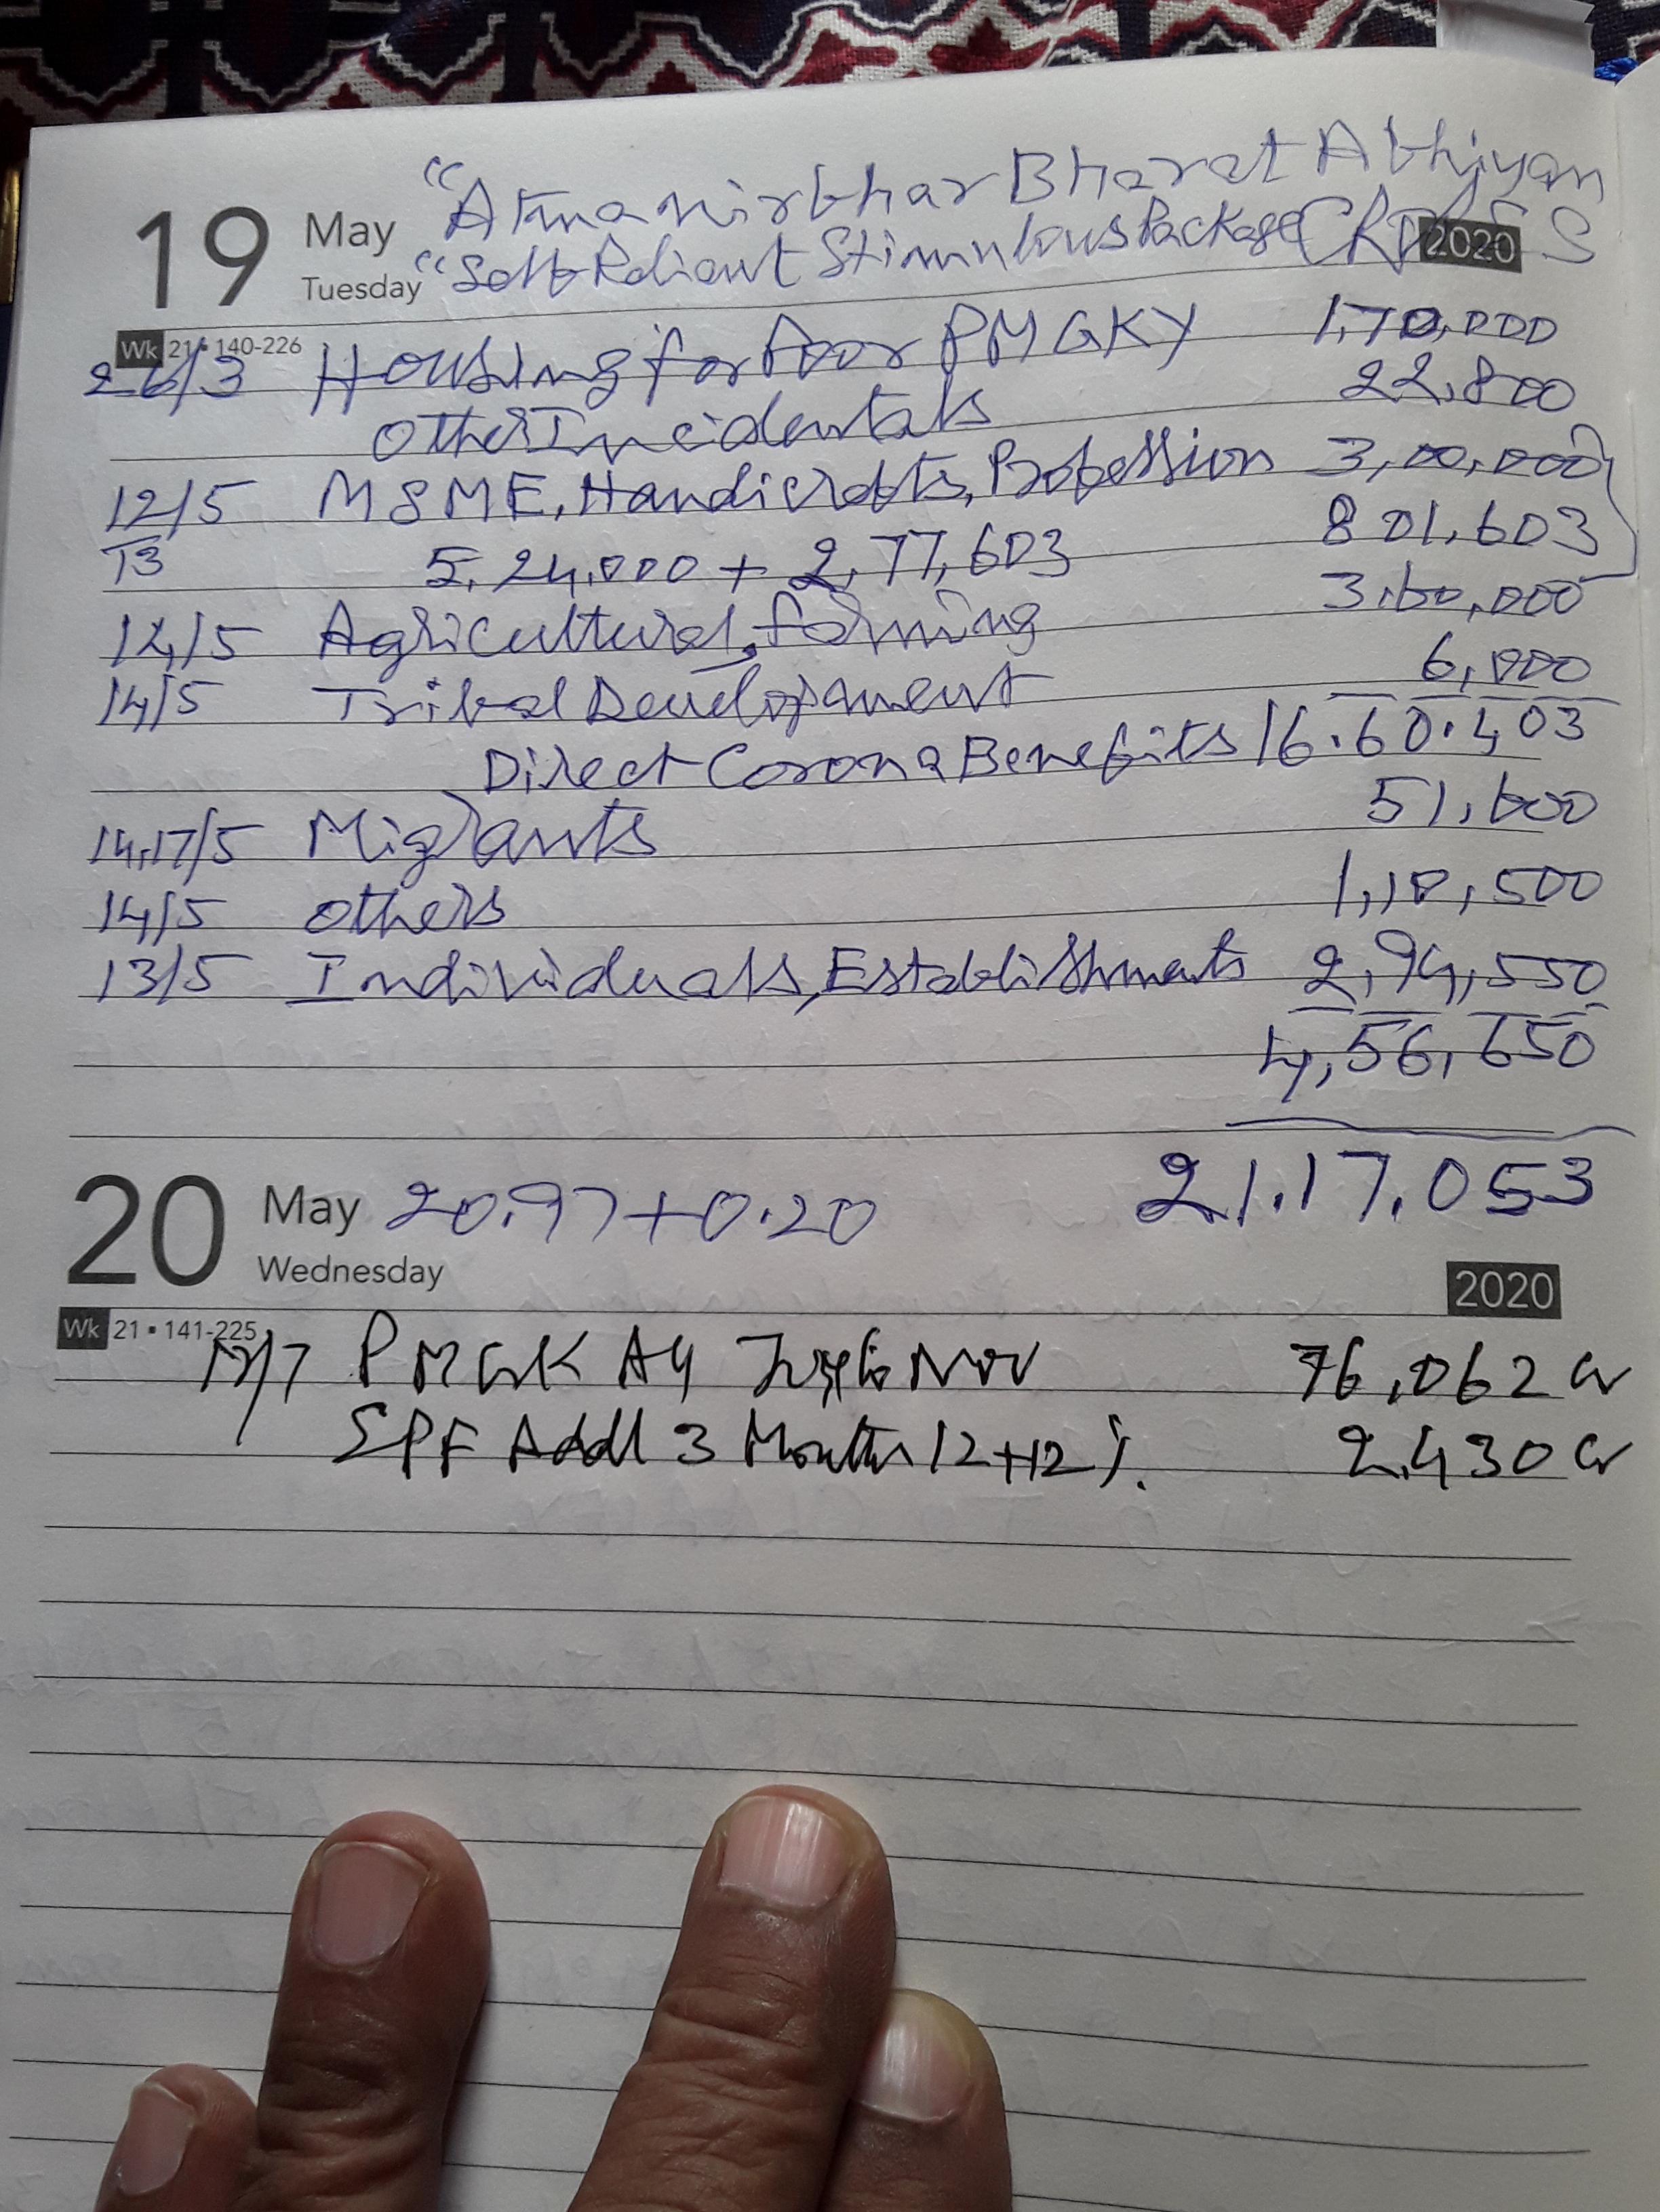 "Atmanirbhar Bharat Abhiyan
19 May
Tuesday
"Self Reliant Stimulous Package CRORES
2020
Wk 21 • 140-226
26/3 Housing for Poor PMGKY 1,70,000
Other Incidentals 22,800
12/5 MSME, Handicrafts, Profession 3,00,000
13 5,24,000 + 2,77,603 801,603
14/5 Agricultural, farming 3,60,000
14/5 Tribal Development 6,000
Direct Corona Benefits 16.60.403
14,17/5 Migrants 51,600
14/5 Others
13/5 Individuals, Establishments 2,94,550
4,56,650
20 May 20.97+0.20 21.17.053
Wednesday
2020
Wk 21 • 141-225
PMGK AY July to Nov 76,062 Cr
EPF Addl 3 Months 12+12%. 2,430 Cr